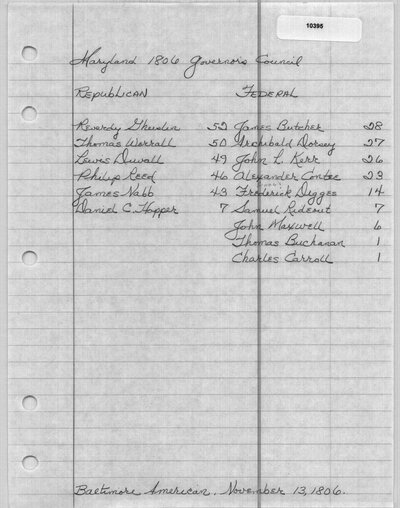 10395
Maryland 1806 Governors Council
Republican Federal
Reverdy Gheislen 52 James Butcher 28
Thomas Worrall 50 Archibald Dorsey 27
Lewis Duvall 49 John L. Kerr 26
Philip Reed 46 Alexander Contee 23
James Nabb 43 Frederick Digges 14
Daniel C. Hopper 7 Samuel Rideout 7
John Maxwell 6
Thomas Buchanan 1
Charles Carroll 1
Baltimore American. November 13, 1806.